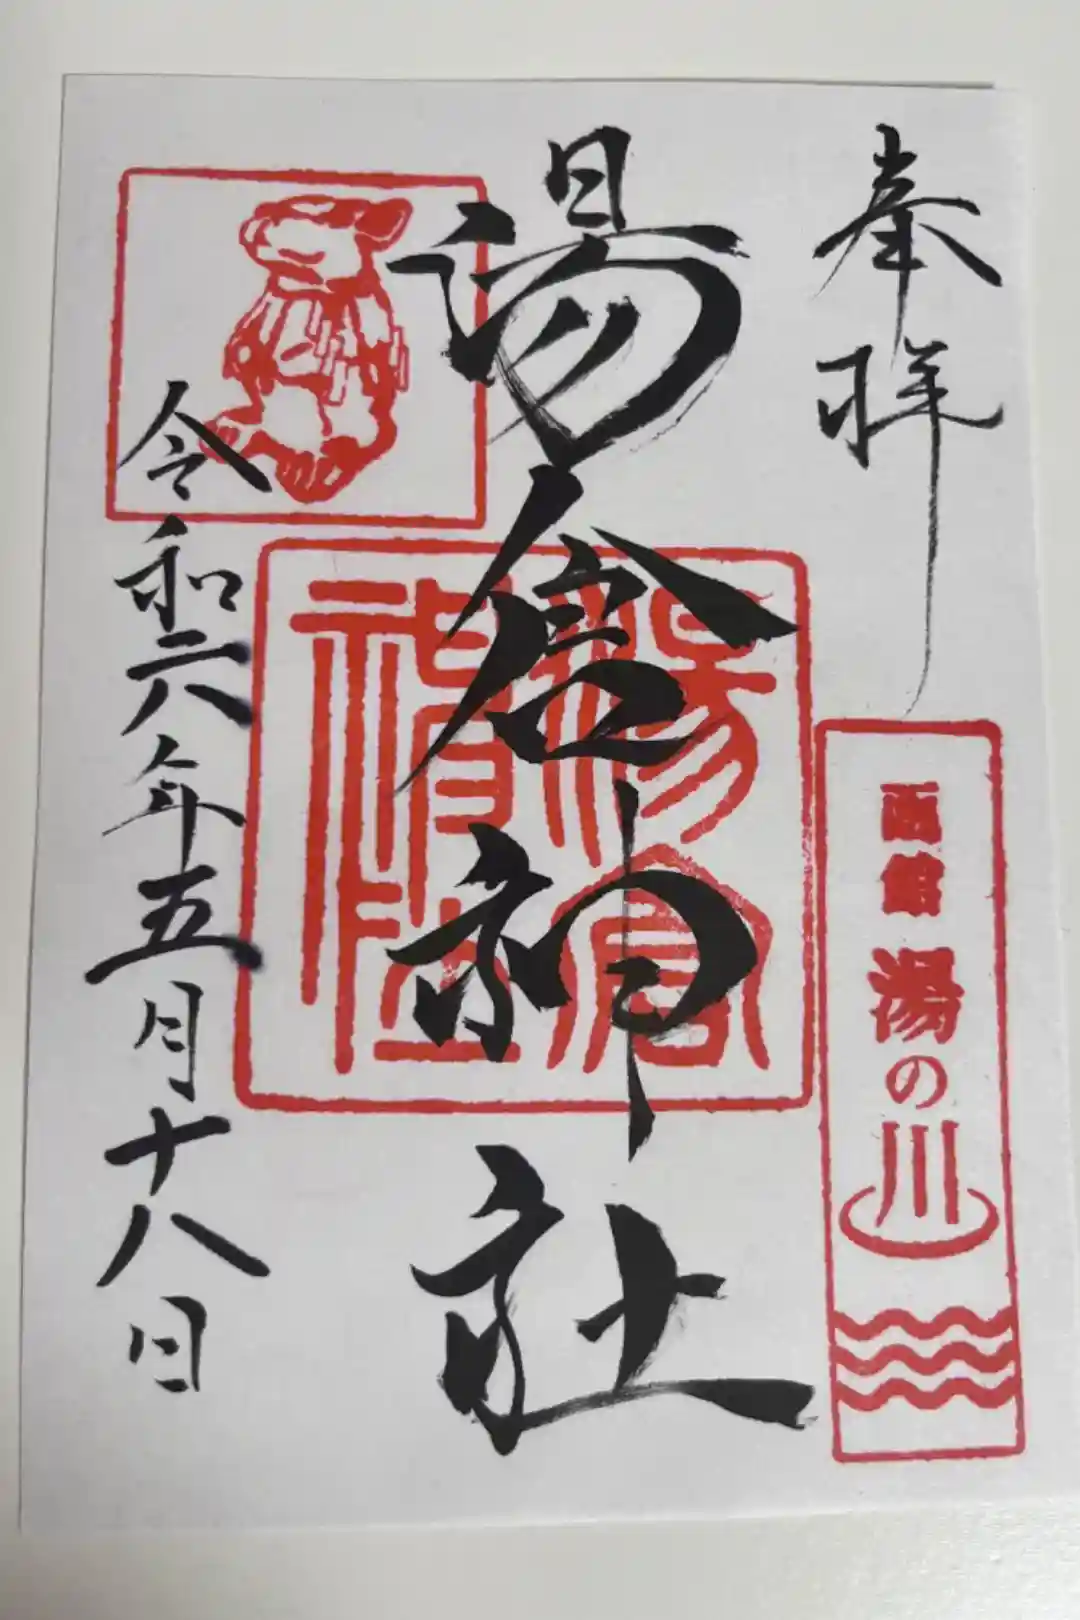 奉拝
函館 湯の川
湯倉神社
湯倉神社
令和六年五月十八日